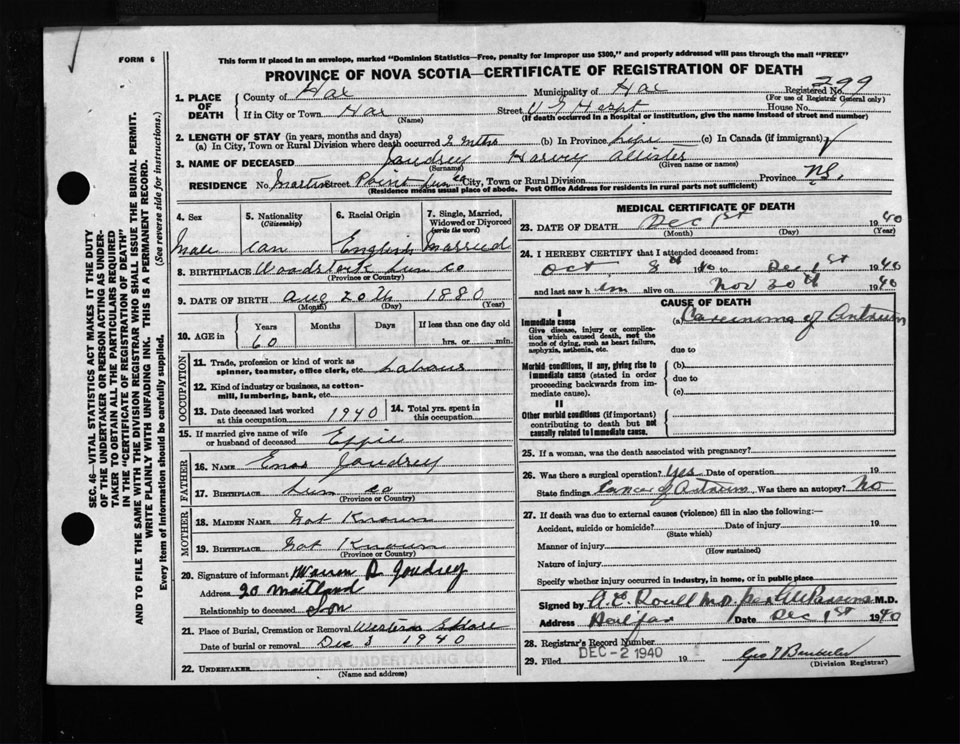 FORM 6
This form if placed in an envelope, marked "Dominion Statistics—Free, penalty for improper use $300," and properly addressed will pass through the mail "FREE"
PROVINCE OF NOVA SCOTIA—CERTIFICATE OF REGISTRATION OF DEATH
Registered No. 299
(For use of Registrar General only)
1. PLACE OF DEATH
County of Hax Municipality of Hax
If in City or Town Hax (Name) Street V G Hospt House No.
(If death occurred in a hospital or institution, give the name instead of street and number)
2. LENGTH OF STAY (in years, months and days)
(a) In City, Town or Rural Division where death occurred 2 mths (b) In Province life (c) In Canada (if immigrant)
3. NAME OF DECEASED Joudrey Harvey Allister
(Surname) (Given name or names)
RESIDENCE No. Martins Street Point Lun Co City, Town or Rural Division Province N.S.
(Residence means usual place of abode. Post Office Address for residents in rural parts not sufficient)
4. Sex Male
5. Nationality (Citizenship) Can
6. Racial Origin English
7. Single, Married, Widowed or Divorced (write the word) Married
8. BIRTHPLACE Woodstock Lun Co
(Province or Country)
9. DATE OF BIRTH Aug 20th 1880
(Month) (Day) (Year)
10. AGE in Years 60 Months Days If less than one day old hrs. or min.
OCCUPATION
11. Trade, profession or kind of work as spinner, teamster, office clerk, etc. Labour
12. Kind of industry or business, as cotton-mill, lumbering, bank, etc.
13. Date deceased last worked at this occupation 1940
14. Total yrs. spent in this occupation
15. If married give name of wife or husband of deceased Effie
FATHER
16. NAME Enos Joudrey
17. BIRTHPLACE Lun Co
(Province or Country)
MOTHER
18. MAIDEN NAME Not Known
19. BIRTHPLACE Not Known
(Province or Country)
20. Signature of informant Warren D Joudrey
Address 20 Maitland
Relationship to deceased Son
21. Place of Burial, Cremation or Removal Western Shore
Date of burial or removal Dec 3 1940
22. UNDERTAKER NOVA SCOTIA UNDERTAKING CO
(Name and address)
MEDICAL CERTIFICATE OF DEATH
23. DATE OF DEATH Dec 1st 1940
(Month) (Day) (Year)
24. I HEREBY CERTIFY that I attended deceased from:
Oct 8th 1940 to Dec 1st 1940
and last saw him alive on Nov 30th 1940
CAUSE OF DEATH
I
Immediate cause (a) Carcinoma of Antrum
Give disease, injury or complication which caused death, not the mode of dying, such as heart failure, asphyxia, asthenia, etc.
due to
Morbid conditions, if any, giving rise to immediate cause (stated in order proceeding backwards from immediate cause).
(b)
due to
(c)
II
Other morbid conditions (if important) contributing to death but not causally related to immediate cause.
25. If a woman, was the death associated with pregnancy?
26. Was there a surgical operation? Yes Date of operation 19
State findings Cancer of Antrum Was there an autopsy? No
27. If death was due to external causes (violence) fill in also the following:—
Accident, suicide or homicide? Date of injury 19
(State which)
Manner of injury
(How sustained)
Nature of injury
Specify whether injury occurred in industry, in home, or in public place
Signed by M.D. per M.D.
Address Halifax Date Dec 1st 1940
28. Registrar's Record Number
29. Filed DEC - 2 1940 19
(Division Registrar)
SEC. 46—VITAL STATISTICS ACT MAKES IT THE DUTY
OF THE UNDERTAKER OR PERSON ACTING AS UNDER-
TAKER TO OBTAIN ALL THE PARTICULARS REQUIRED
IN THE "CERTIFICATE OF REGISTRATION OF DEATH"
AND TO FILE THE SAME WITH THE DIVISION REGISTRAR WHO SHALL ISSUE THE BURIAL PERMIT.
WRITE PLAINLY WITH UNFADING INK. THIS IS A PERMANENT RECORD.
Every item of information should be carefully supplied. (See reverse side for instructions.)